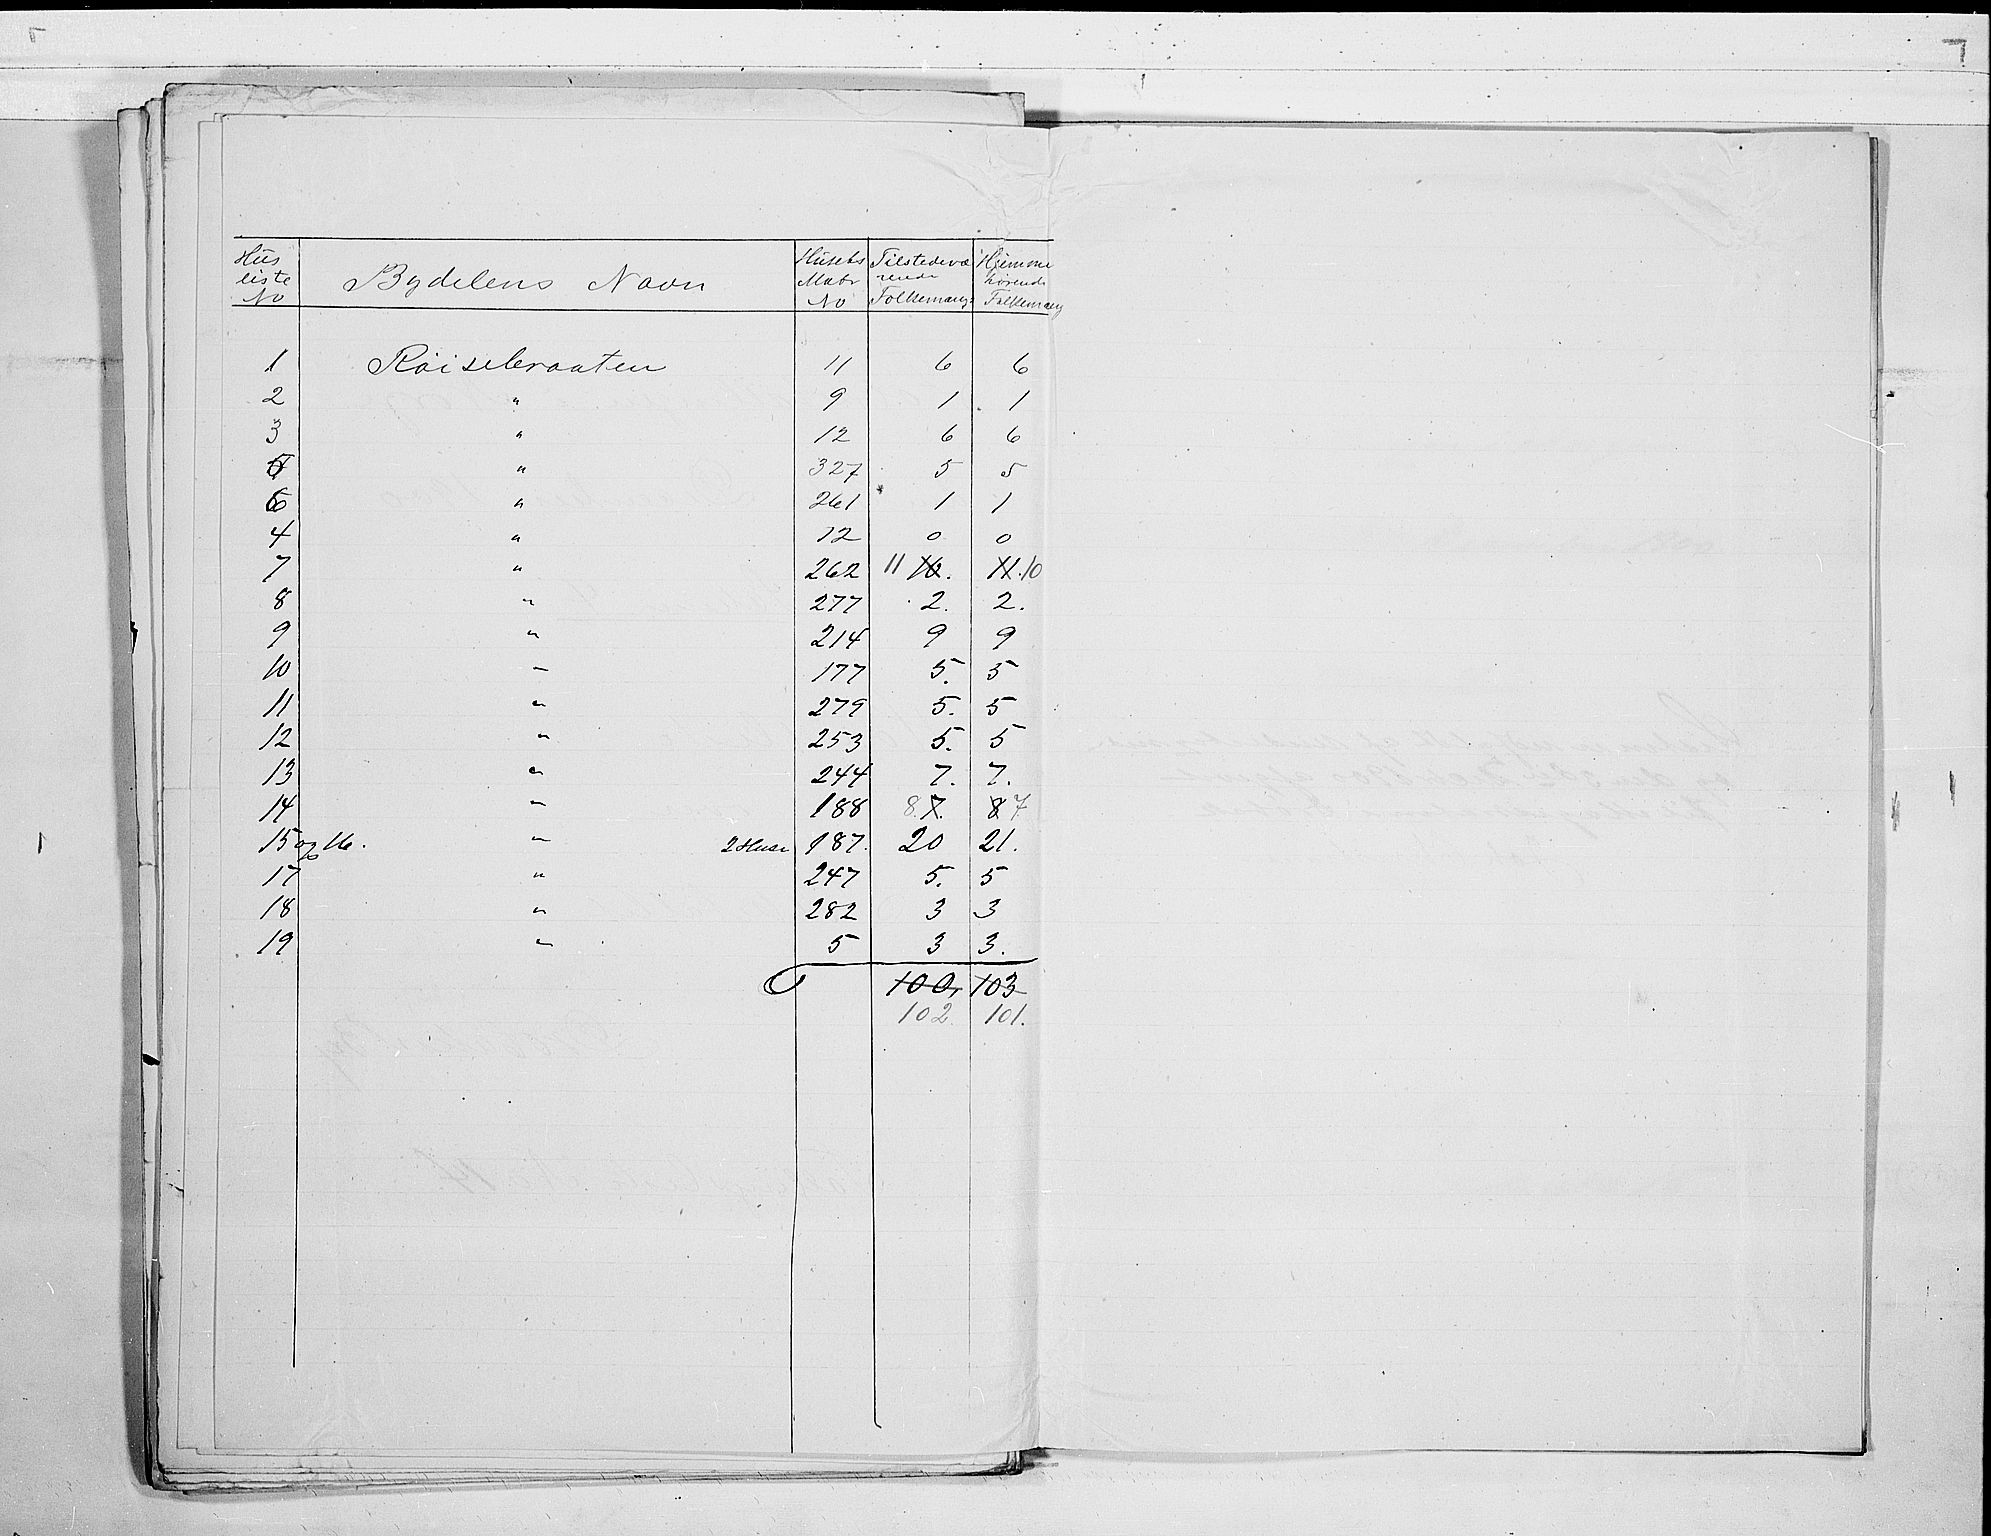 Hus liste No | Bydelens Navn | Husets Matr No | Tilstedevæ rende Folkemæng: | Hjemme hørende Folkemæng
1 Röisebraaten 11 6 6
2 " 9 1 1
3 " 12 6 6
5 " 327 5 5
6 " 261 1 1
4 " 12 0 0
7 " 262 11 10. 11. 10
8 " 277 2. 2.
9 " 214 9 9
10 " 177 5. 5
11 " 279 5. 5
12 " 253 5. 5
13 " 244 7. 7.
14 " 188 8. 7. 8 7
15 og 16. " 2 Huse 187. 20 21.
17 " 247 5. 5
18 " 282 3 3
19 " 5 3 3.
100, 103
102. 101.